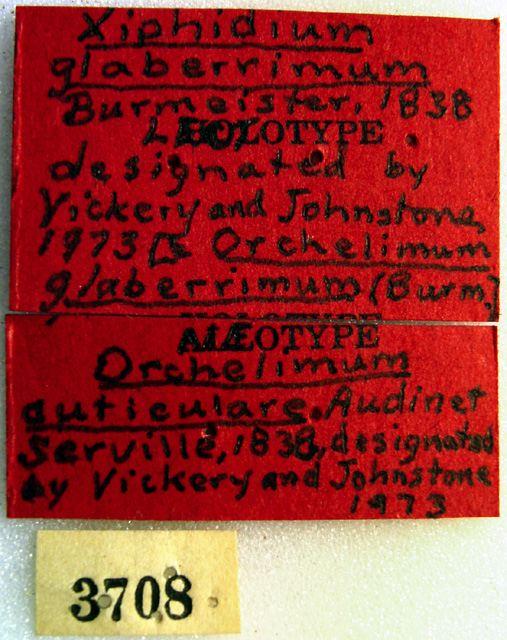 Xiphidium
glaberrimum
Burmeister, 1838
LECTOTYPE
designated by
Vickery and Johnstone,
1973 Is Orchelimum
glaberrimum (Burm.)
Orchelimum
cuticulare, Audinet
Serville, 1838, designated
by Vickery and Johnstone
1973
3708